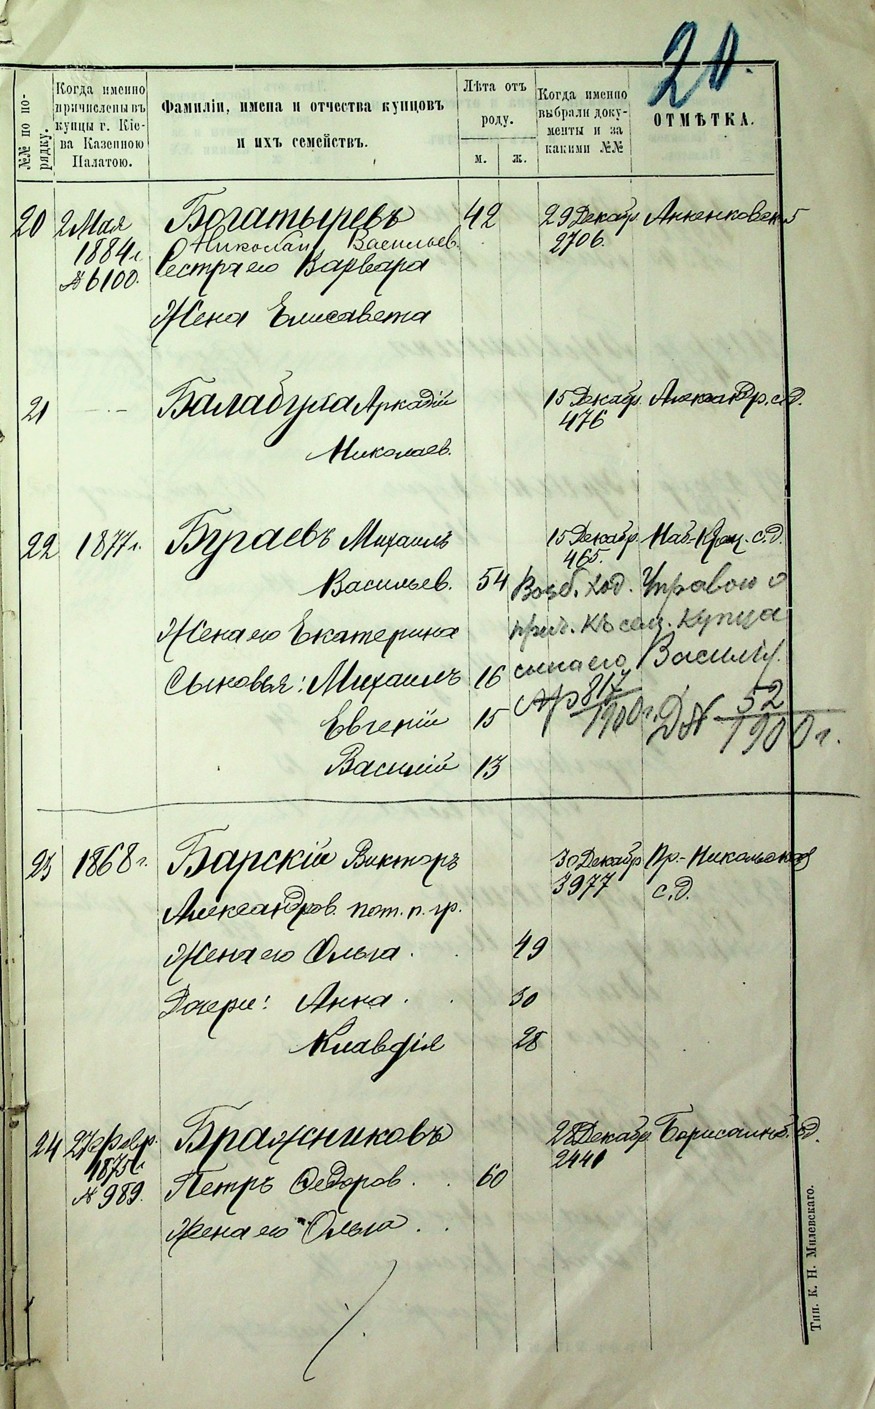 20.
№№ по по-
рядку.
Когда именно
причислены въ
купцы г. Кіе-
ва Казенною
Палатою.
Фамиліи, имена и отчества купцовъ
и ихъ семействъ.
Лѣта отъ
роду.
м. ж.
Когда именно
выбрали доку-
менты и за
какими №№
ОТМѢТКА.
20 2 Мая Богатыревъ 42 29 Декабр.
1884 г. Николай Васильев. 2706
№ 6100. Сестра его Варвара
Жена Елисавета
21 — Балабуха Аркадій 15 Декабр. Александр. с. д.
Николаев. 476
22 1877 г. Бугаевъ Михаилъ 15 Декабр. с. д.
Васильев. 54 465.
Возб. ход. Управою о
Жена его Екатерина прич. къ сем. купца
Сыновья: Михаилъ 16 сына его Василія.
Евгеній 15 817/1900 г. Д № 52/1900 г.
Василій 13
23 1868 г. Барскій Викторъ 30 Декабр
Александров. пот. п. гр. 3977 с. д.
Жена его Ольга. 49
Дочери: Анна. 30
Клавдія 28
24 27 Февр. Бражниковъ 28 Декабр.
1875 г. 2441
№ 989. Петръ Федоров. 60
Жена его Ольга.
Тип. К. Н. Милевскаго.